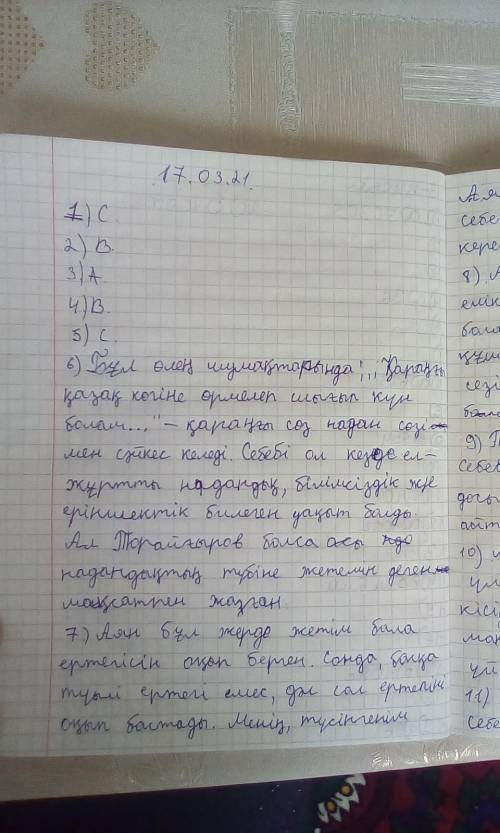 17.03.21.
1) С.
2) В.
3) А
4) В.
5) С.
6) Бұл өлең шумақтарында; „Қараңғы
қазақ көгіне өрмелеп шығып күн
болам..." – қараңғы сөз надан сөзі
мен сәйкес келеді. Себебі ол кезде ел-
жұртты надандық, білімсіздік және
еріншектік билеген уақыт болды.
Ал Торайғыров болса осы
надандықтың түбіне жетемін деген
мақсатпен жазған.
7) Аян бұл жерде жетім бала
ертегісін оқып берген. Сонда, басқа
туылі ертегі емес, дәл сол ертегіні
оқып бастады. Менің, түсінгенім
Ая
себе
кере
8) А
елік
бала
күш
сезі
9) Т
себе
доғы
айт
10)
ұл
кісі
ма
үй
11)
себе